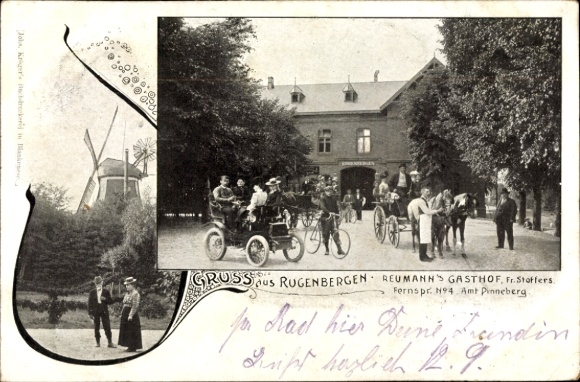 Joh. Kröger's Buchdruckerei in Blankenese.
GRUSS aus RUGENBERGEN · REUMANN'S GASTHOF, Fr. Stoffers.
Fernspr. No 4. Amt Pinneberg.
Rad hier Deine Freundin
Grüßt herzlich 12. 9.